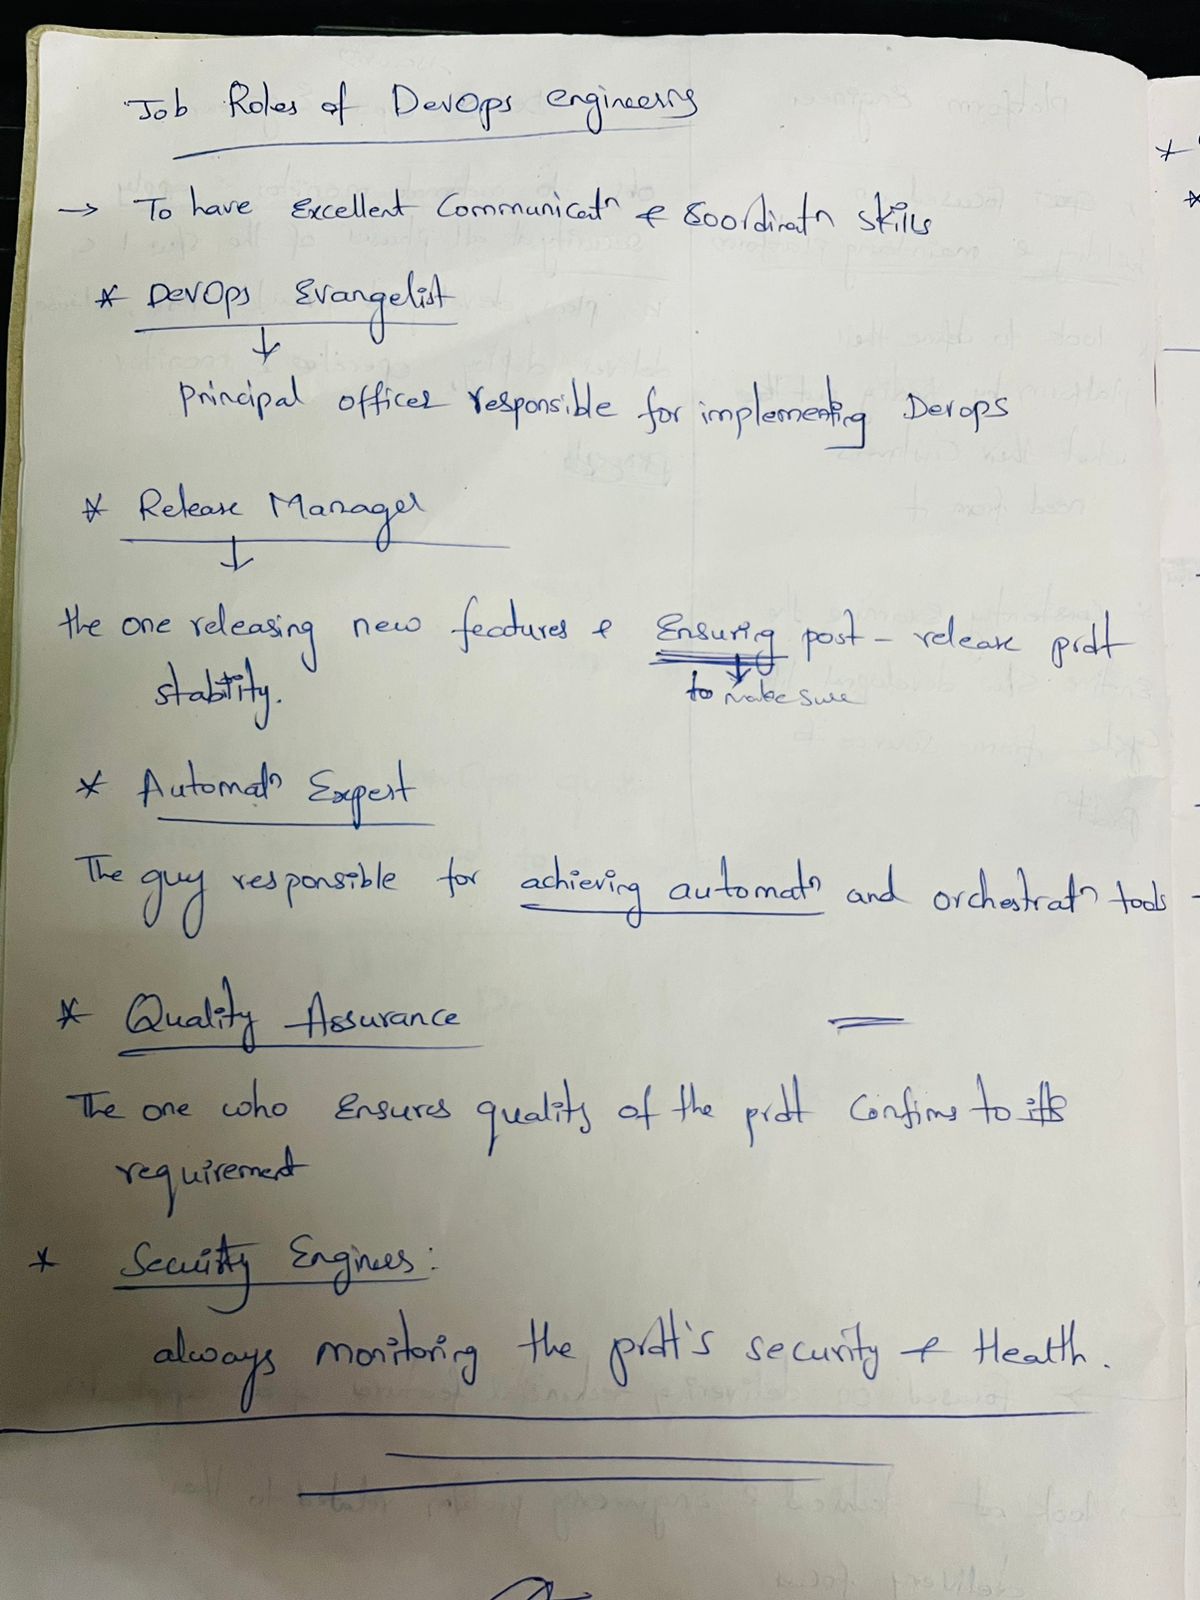 Job Roles of DevOps engineers
→ To have Excellent Communicatn & Coordinatn skills
* DevOps Evangelist
↓
principal officer responsible for implementing Devops
* Release Manager
↓
the one releasing new features & Ensuring post - release prdt
↓
to make sure
stability.
* Automatn Expert
The guy responsible for achieving automatn and orchestratn tools
* Quality Assurance
The one who Ensures quality of the prdt Confirms to its
requirement
* Security Engineer:
always monitoring the prdt's security & Health.